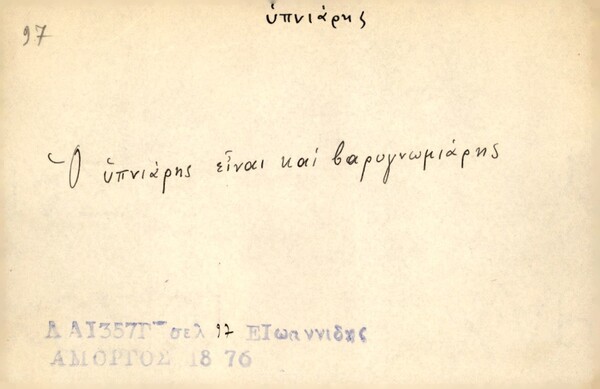 ὑπνιάρης
97
Ὁ ὑπνιάρης εἶναι καί βαρυγνωμιάρης
Λ ΑΙ357Γ'' σελ 97 ΕΙωαννιδης
ΑΜΟΡΓΟΣ 18 76